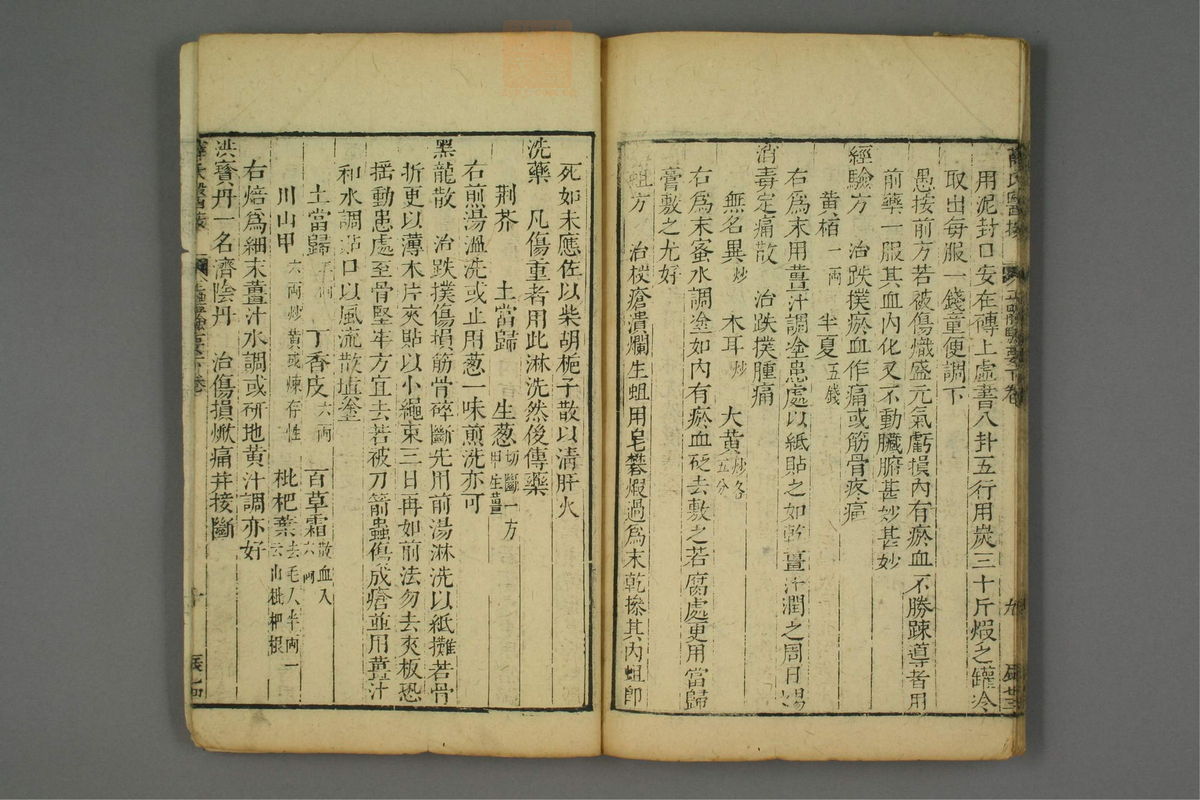 用泥封口安在磚上虛書八卦五行用炭三十斤煆之罐冷
取出每服一錢童便調下
愚按前方若被傷熾盛元氣虧損內有瘀血不勝踈導者用
前藥一服其血內化又不動臟腑甚妙甚妙
經驗方 治跌撲瘀血作痛或筋骨疼痛
黃栢一兩 半夏五錢
右爲末用薑汁調塗患處以紙貼之如乾薑汁潤之周日易
消毒定痛散 治跌撲腫痛
無名異炒 木耳炒 大黃炒各五分
右爲末蜜水調塗如內有瘀血砭去敷之若腐處更用當歸
膏敷之尤好
蛆方 治杖瘡潰爛生蛆用皂礬煆過爲末乾摻其內蛆卽
死如未應佐以柴胡梔子散以清肝火
洗藥 凡傷重者用此淋洗然後傅藥
荆芥 土當歸 生葱切斷一方用生薑
右煎湯溫洗或止用葱一味煎洗亦可
黑龍散 治跌撲傷損筋骨碎斷先用前湯淋洗以紙攤若骨
折更以薄木片夾貼以小繩束三日再如前法勿去夾板恐
搖動患處至骨堅牢方宜去若被刀箭蟲傷成瘡並用薑汁
和水調貼口以風流散塡塗
土當歸二兩 丁香皮六兩 百草霜散血入六兩
川山甲六兩炒黃或煉存性 枇杷葉去毛入半兩一云山枇杷根
右焙爲細末薑汁水調或硏地黃汁調亦好
洪寶丹一名濟陰丹 治傷損焮痛幷接斷